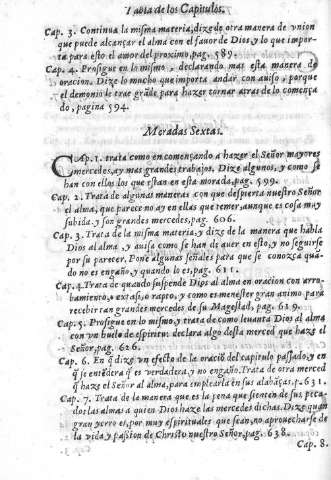 Tabla de los Capitulos.
Cap. 3. Continua la misma materia, dize de otra manera de vnion
que puede alcançar el alma con el fauor de Dios, y lo que impor-
ta para esto el amor del proximo, pag. 589.
Cap. 4. Prosigue en lo mismo, declarando mas esta manera de
oracion. Dize lo mucho que importa andar con auiso, porque
el demonio le trae grãde para hazer tornar atras de lo comença
do, pagina 594.
Moradas Sextas.
CAp. 1. trata como en començando a hazer el Señor mayores
mercedes, ay mas grandes trabajos. Dize algunos, y como se
han con ellos los que estan en esta morada, pag. 599.
Cap. 2. Trata de algunas maneras con que despierta nuestro Señor
el alma, que parece no ay en ellas que temer, aunque es cosa muy
subida y son grandes mercedes, pag. 606.
Cap. 3. Trata de la misma materia y dize de la manera que habla
Dios al alma, y auisa como se han de auer en esto, y no seguirse
por su parecer. Pone algunas señales para que se conozca quã-
do no es engaño, y quando lo es, pag. 611.
Cap. 4. Trata de quando suspende Dios al alma en oracion con arro-
bamiento, o extasi, o rapto, y como es menester gran animo para
recebir tan grandes mercedes de su Magestad, pag. 619.
Cap. 5. Prosigue en lo mismo, y trata de como leuanta Dios al alma
con vn buelo de espiritu: declara algo desta merced que haze el
Señor, pag. 626.
Cap. 6. En q̃ dize vn efecto de la oraciõ del capitulo passado, y en
q̃ se entẽdera q̃ es verdadera, y no engaño. Trata de otra merced
q̃ haze el Señor al alma, para emplearla en sus alabãças, p. 631.
Cap. 7. Trata de la manera que es la pena que sienten de sus peca-
dos las almas a quien Dios haze las mercedes dichas. Dize quan
gran yerro es, por muy espirituales que sean, no aprouecharse de
la vida y passion de Christo nuestro Señor, pag. 638.
Cap. 8.